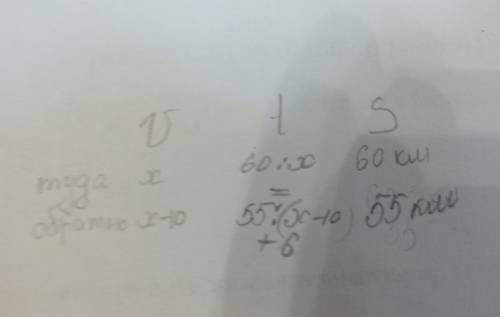 V t S
туда x 60:x 60 км
=
обратно x-10 55:(x-10) 55 км
+6